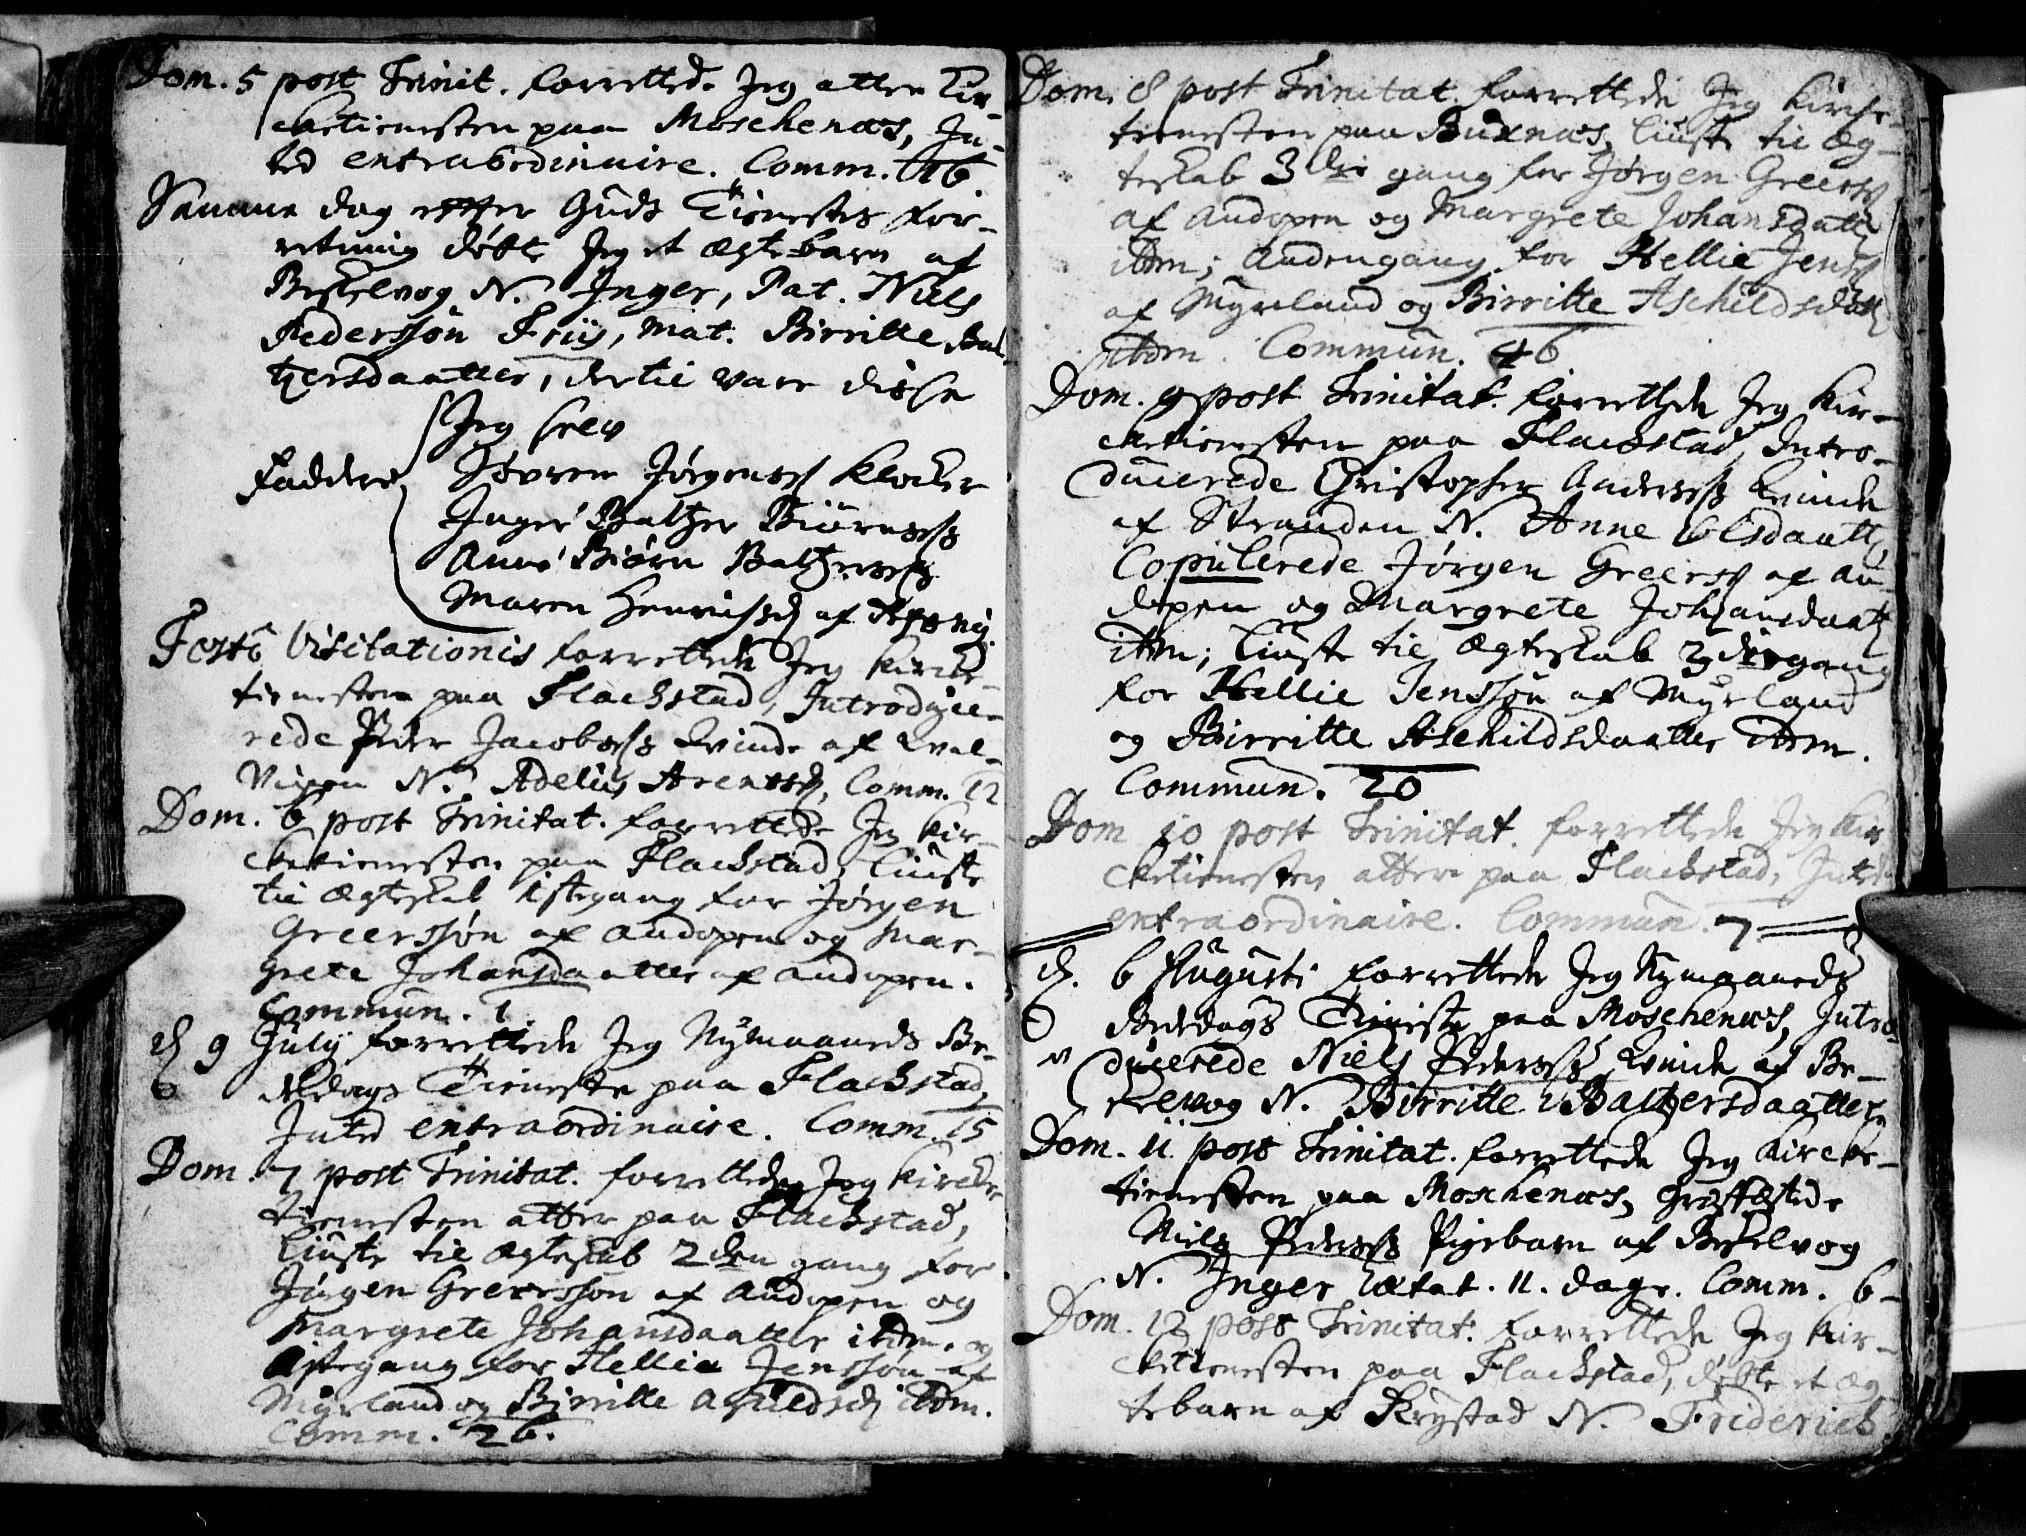 Dom. 5 post Trinit. forrettede Jeg atter Kir-
cketienesten paa Moschenæs, In-
ted extraordinaire. Comm. 16.
Samme dag efter Guds Tienestes for-
retning døbte Jeg et ægte barn af
N. Inger, Pat. Niels
Pederssøn Friis, Mat. Birritte Bal-
tzersdaatter, dertil vare disse
Jeg selv
Faddere Søvren Jørgenss Klocker
Inger Baltzer Biørnss
Anne Biørn Baltzerss
Maren Henrichsd af
Festo Visitationis forrettede Jeg Kircke-
tienesten paa Flachstad, Introduce-
rede Peder Jacobss Kvinde af Qval-
Vigen N. Adelus Arentsd, Comm. 12
Dom. 6 post Trinitat. forrettede Jeg Kir-
cketienesten paa Flachstad, liuste
til Ægteskab 1stegang for Jørgen
Greerssøn af Andopen og Mar-
grete Johansdaatter af Andopen.
Commun. 1.
d 9 July forrettede Jeg Nymaaneds Be-
dedags Tieneste paa Flachstad,
Inted extraordinaire. Comm. 15
Dom. 7 post Trinitat. forrettede Jeg Kircke-
tienesten atter paa Flachstad,
liuste til Ægteskab 2den gang for
Jørgen Greerssøn af Andopen og
Margrete Johansdaatter itdm. og
1stegang for Hellie Jenssøn af
Myrland og Birritte Aschildsd itdm.
Comm. 26.
Dom. 8 post Trinitat. forrettede Jeg Kircke-
tienesten paa Buxnæs, liuste til Æg-
teskab 3die gang for Jørgen Greerss
af Andopen og Margrete Johansdaatt
itdm; Andengang for Hellie Jenss
af Myrland og Birritte Aschildsdatt
itdm. Commun. 46
Dom. 9 post Trinitat. forrettede Jeg Kir-
cketienesten paa Flachstad, Intro-
ducerede Christopher Anderss Kvinde
af Stranden N. Anne Olsdaatt,
Copulerede Jørgen Greerss af An-
dopen og Margrete Johansdaatt
itdm; liuste til Ægteskab 3die gang
for Hellie Jenssøn af Myrland
og Birritte Aschildsdaatter itdm.
Commun. 20
Dom 10 post Trinitat. forrettede Jeg Kir-
cketienesten atter paa Flachstad, Inted
extraordinaire. Commun. 7
d. 6 Augusti forrettede Jeg Nymaaneds
Bededags Tieneste paa Moschenæs, Intro-
ducerede Niels Pederss Kvinde af
N. Birritte Baltzersdaatter
Dom. 11 post Trinitat. forrettede Jeg Kircke-
tienesten paa Moschenæs, Græffæstede
Niels Pederss Pigebarn af
N. Inger ætat. 11. dage. Comm. 6-
Dom. 12 post Trinitat. forrettede Jeg Kir-
cketienesten paa Flachstad, døbte et æg-
tebarn af N. Friderich